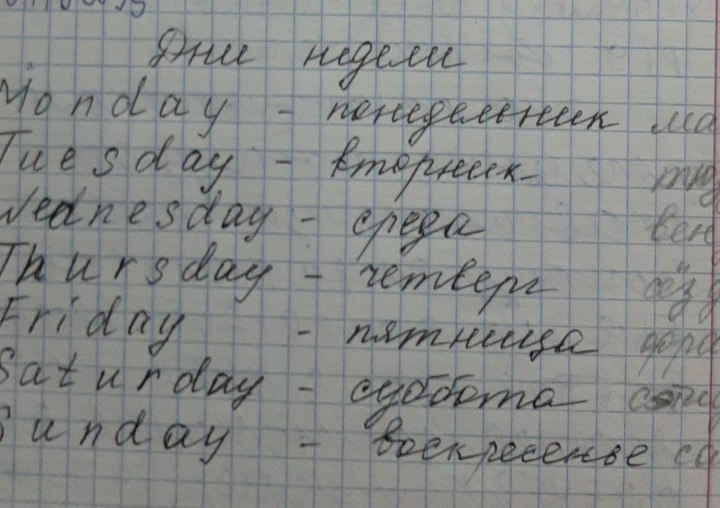 Дни недели
Monday - понедельник
Tuesday - вторник
Wednesday - среда
Thursday - четверг
Friday - пятница
Saturday - суббота
Sunday - воскресенье